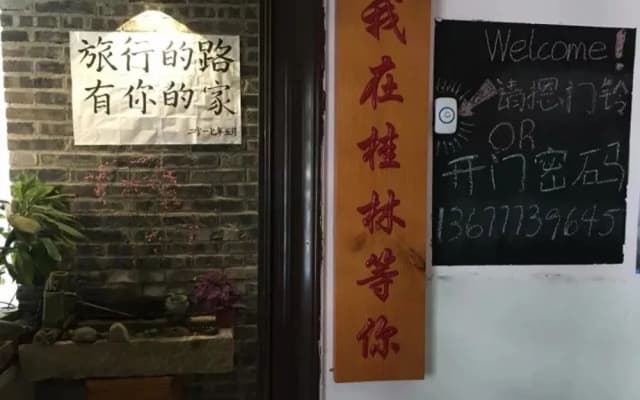 旅行的路
有你的家
二〇一七年五月
我在桂林等你
Welcome!
请摁门铃
OR
开门密码
13677739645